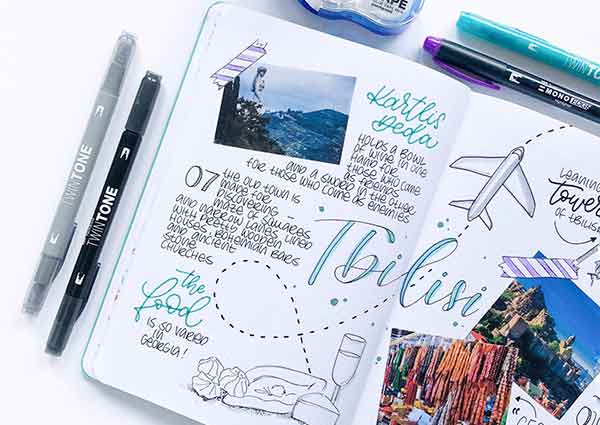 TAPE
TWINTONE
TWINTONE
MONO
Kartlis
Deda
HOLDS A BOWL
OF WINE IN ONE
HAND FOR
THOSE WHO COME
AS FRIENDS
AND A SWORD IN THE OTHER
FOR THOSE WHO COME AS ENEMIES
07
THE OLD TOWN IS
MADE FOR
DISCOVERING
MAZE OF SQUARES
AND NARROW LANES LINED
WITH PRETTY WOODEN
HOUSES, BOHEMIAN BARS
AND ANCIENT
STONE
CHURCHES
the
food
IS SO VARIED
IN
GEORGIA!
Tbilisi
LEANING
Tower
OF TBILISI